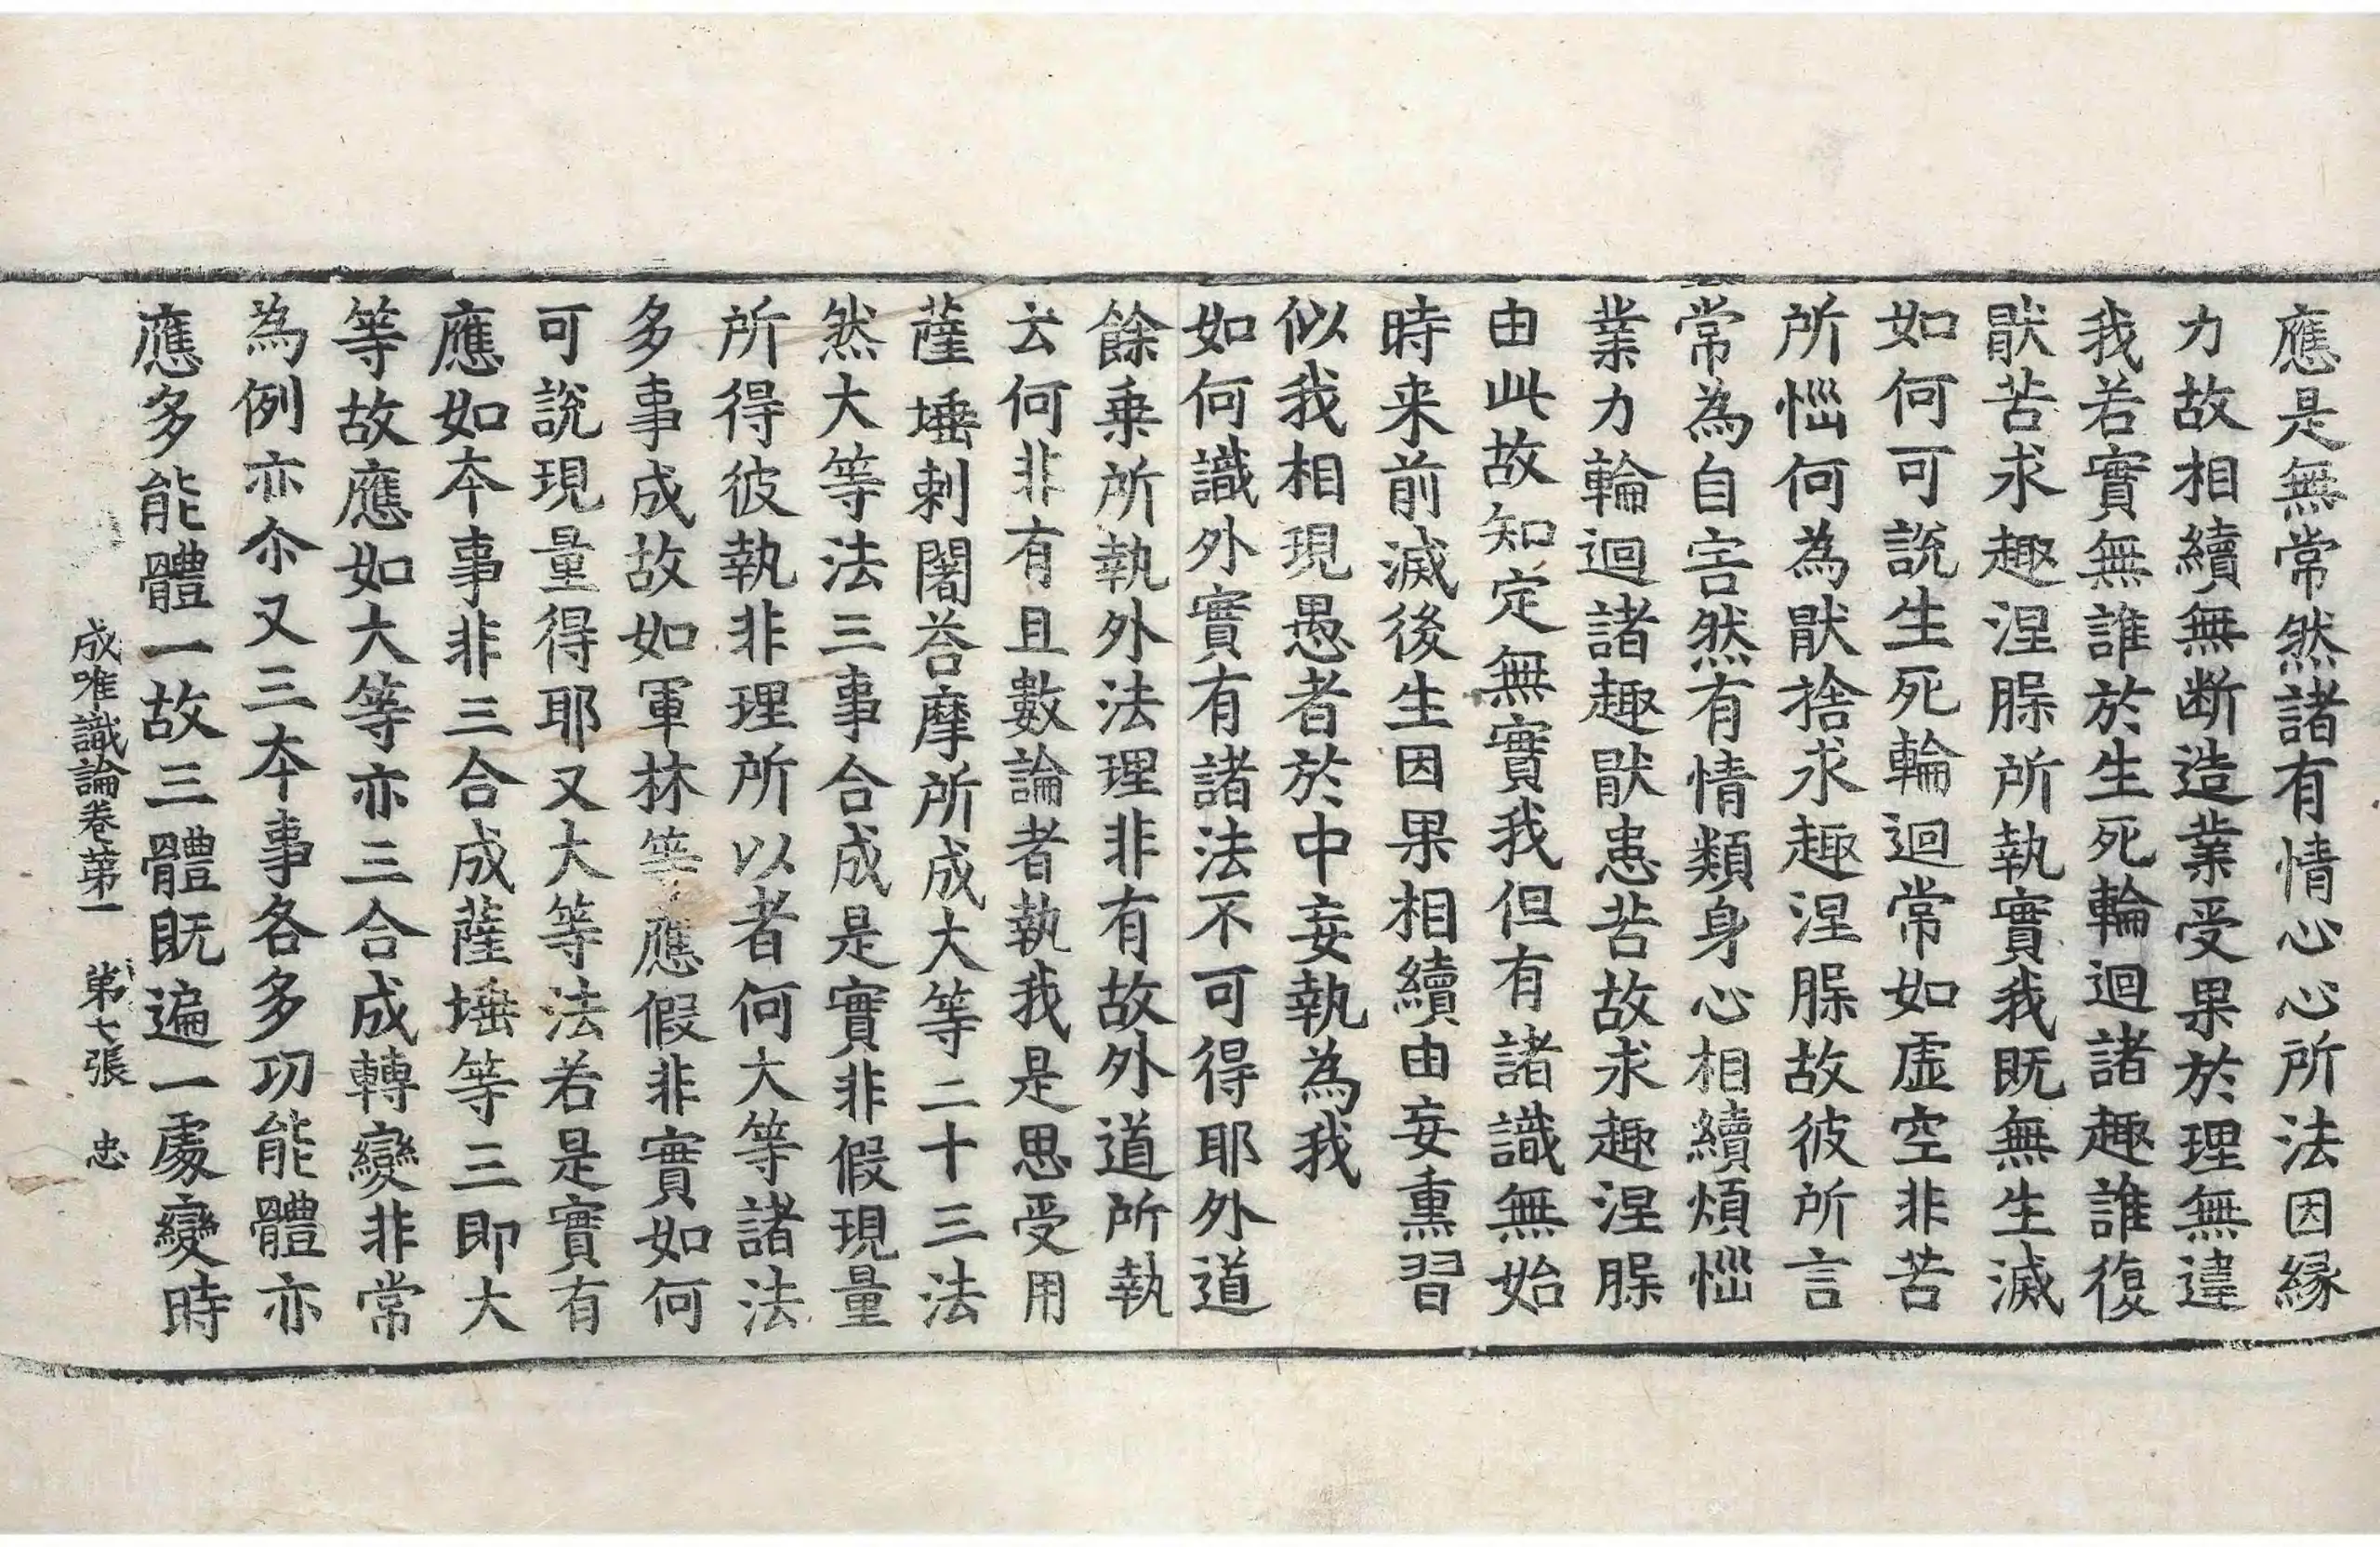 應是無常然諸有情心心所法因緣
力故相續無断造業受果於理無違
我若實無誰於生死輪迴諸趣誰復
猒苦求趣涅槃所執實我既無生滅
如何可說生死輪迴常如虛空非苦
所惱何為猒捨求趣涅槃故彼所言
常為自害然有情類身心相續煩惱
業力輪迴諸趣猒患苦故求趣涅槃
由此故知定無實我但有諸識無始
時来前滅後生因果相續由妄熏習
似我相現愚者於中妄執為我
如何識外實有諸法不可得耶外道
餘乗所執外法理非有故外道所執
云何非有且數論者執我是思受用
薩埵剌闍荅摩所成大等二十三法
然大等法三事合成是實非假現量
所得彼執非理所以者何大等諸法
多事成故如軍林等應假非實如何
可說現量得耶又大等法若是實有
應如夲事非三合成薩埵等三即大
等故應如大等亦三合成轉變非常
為例亦尒又三夲事各多功能體亦
應多能體一故三體既遍一處變時
成唯識論卷第一 第七張 忠